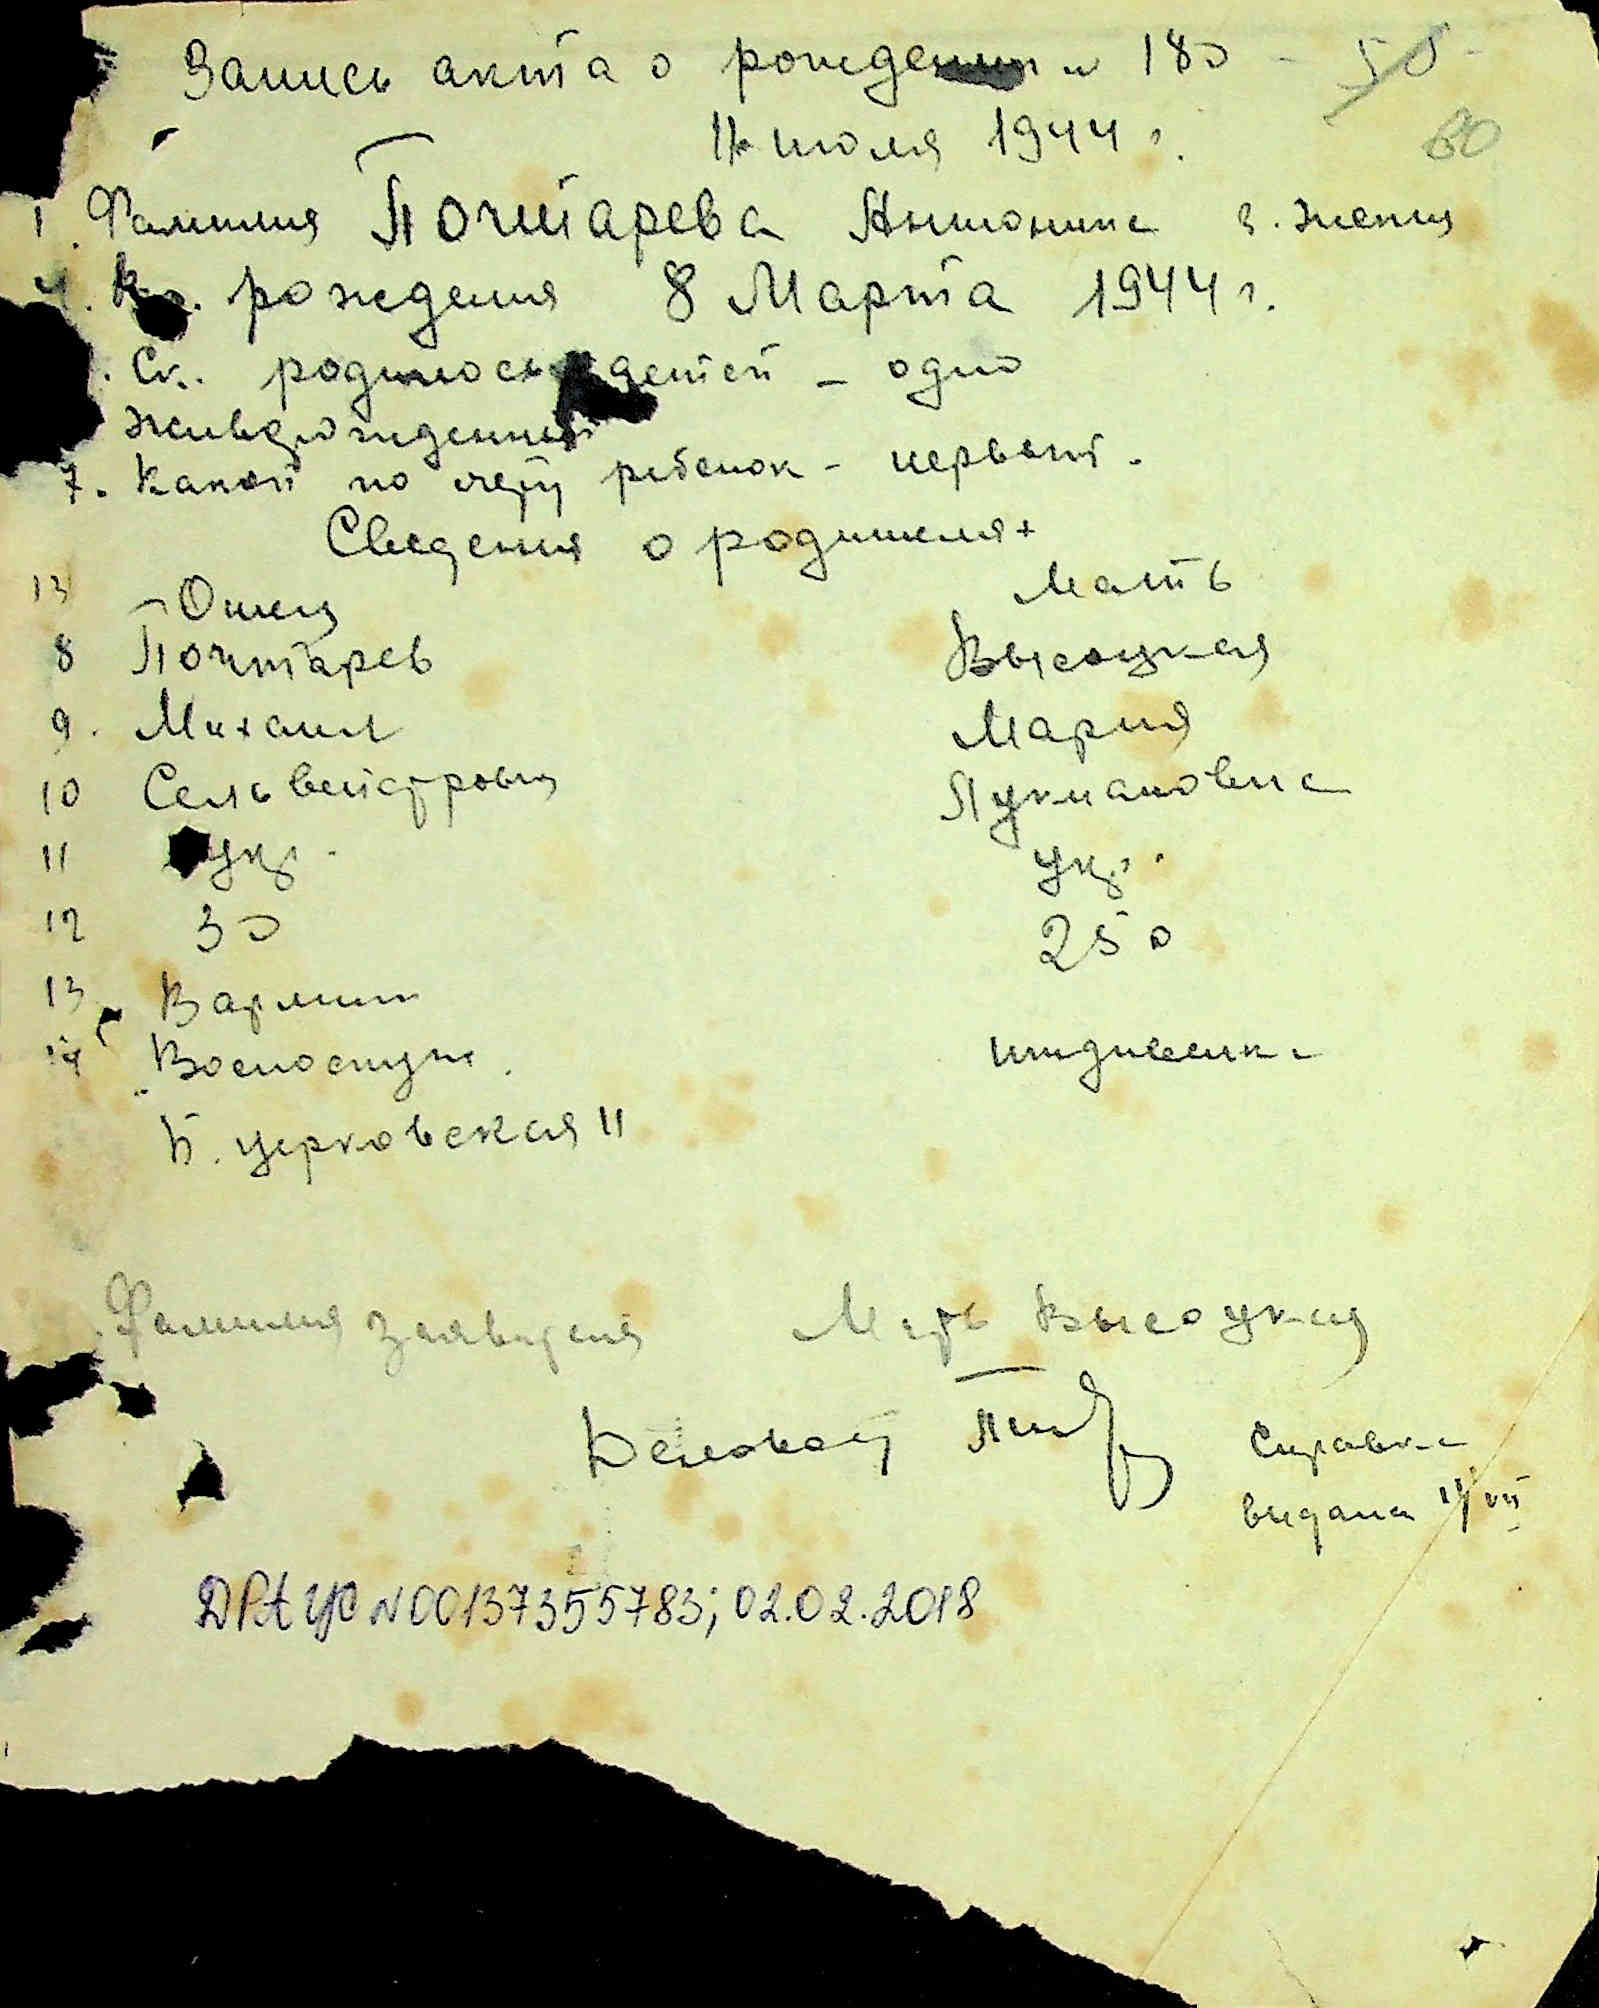 Запись акта о рождении № 180 - 50
60
11 июля 1944 г.
1. Фамилия Почтарева Антонина 3. женщ
4. рождения 8 Марта 1944 г.
Ск. родилось детей - одно
живорожденный
7. Какой по счету ребенок - первый.
Сведения о родителях
13 Отец Мать
8 Почтарев Высоцкая
9. Михаил Мария
10 Сельвейстрович Лукмановна
11 укр. укр.
12 30 25
13
14 иждивенка
Б. церковская 11
Фамилия заявителя Мать Высоцкая
Справка
видана 11/VII
ДРАЦС №00137355783; 02.02.2018